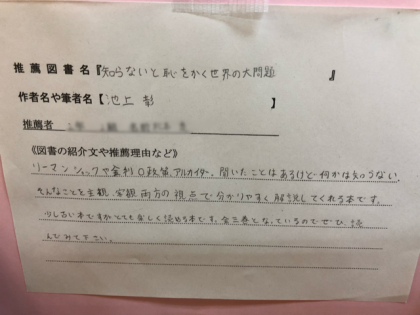 推薦図書名『知らないと恥をかく世界の大問題 』
作者名や筆者名【池上 彰 】
推薦者
《図書の紹介文や推薦理由など》
リーマンショックや金利0政策、アルカイダー。聞いたことはあるけど何かは知らない。
そんなことを主観、客観両方の視点で分かりやすく解説してくれる本です。
少し古い本ですがとても楽しく読める本です。全三巻となっているのでぜひ、読
んでみて下さい。